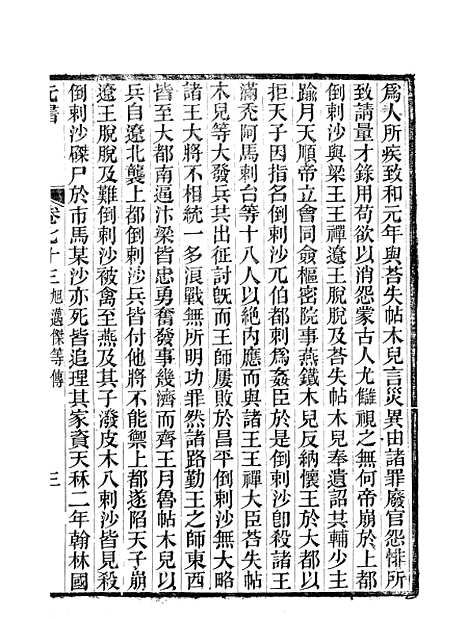 爲人所疾致和元年與荅失帖木兒言災異由諸罪廢官怨悱所
致請量才錄用苟欲以消怨蒙古人尤讎視之無何帝崩於上都
倒剌沙與梁王王禪遼王脫脫及荅失帖木兒奉遺詔其輔少主
踰月天順帝立會同僉樞密院事燕鐵木兒反納懷王於大都以
拒天子因指名倒剌沙兀伯都剌爲姦臣於是倒剌沙卽殺諸王
滿禿阿馬剌台等十八人以絶內應而與諸王王禪大臣荅失帖
木兒等大發兵其出征討旣而王師屢敗於昌平倒剌沙無大略
諸王大將不相統一多浪戰無所明功罪然諸路勤王之師東西
皆至大都南逼汴梁皆忠勇奮發事幾濟而齊王月魯帖木兒以
兵自遼北襲上都倒剌沙兵皆付他將不能禦上都遂陷天子崩
遼王脫脫及難倒剌沙被禽至燕及其子潑皮木八剌沙皆見殺
倒剌沙磔尸於市馬某沙亦死皆追理其家資天秝二年翰林國
元書 卷七十三 旭邁傑等傳 三